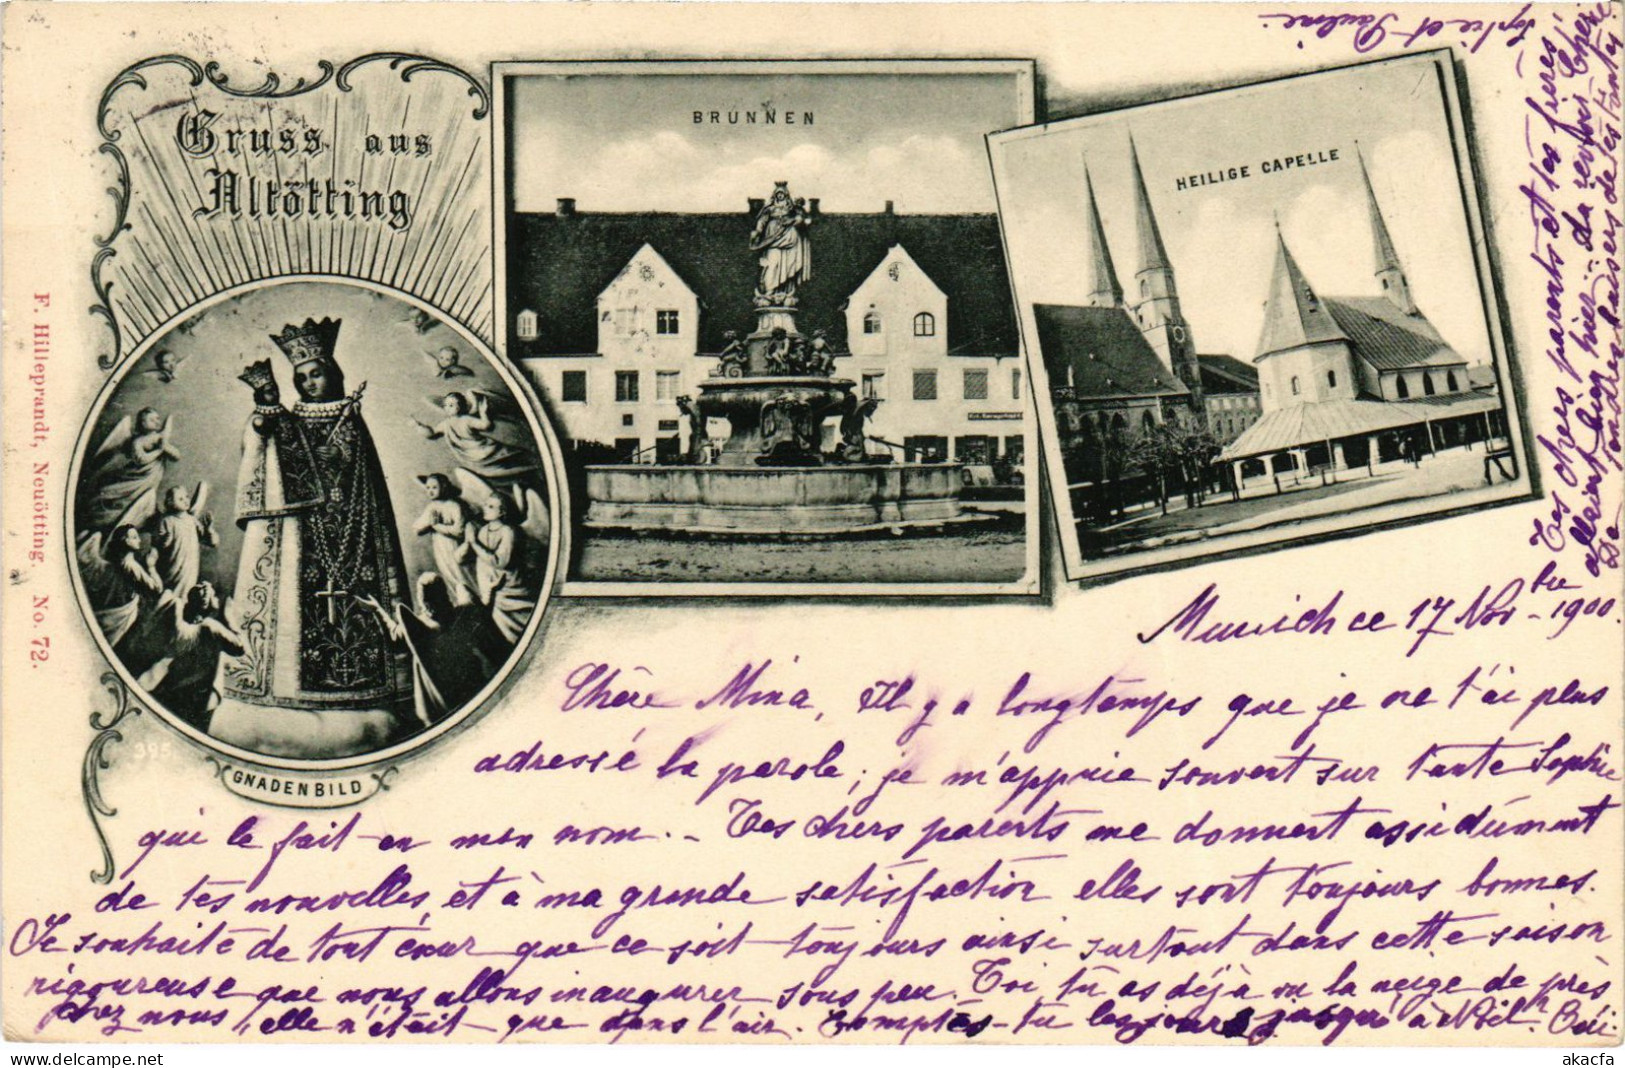 Gruss aus
Altötting
BRUNNEN
HEILIGE CAPELLE
GNADENBILD
395
F. Hilleprandt, Neuötting. No. 72.
Munich ce 17 Nov-bre 1900.
Chère Mina, Il y a longtemps que je ne t'ai plus
adressé la parole; je m'appuie souvent sur tante Sophie
qui le fait en mon nom. - Tes chers parents me donnent assidûment
de tes nouvelles, et à ma grande satisfaction elles sont toujours bonnes.
Je souhaite de tout cœur que ce soit toujours ainsi surtout dans cette saison
rigoureuse que nous allons inaugurer sous peu. Toi tu as déjà vu la neige de près
chez nous, elle n'était que dans l'air. Comptes-tu les jours jusqu'à Noël? Oui.
Tes chers parents et tes frères
allaient bien hier. Au revoir Chérie
De tendres baisers de tes tantes
Sophie et Pauline.
akacfa
delcampe.net